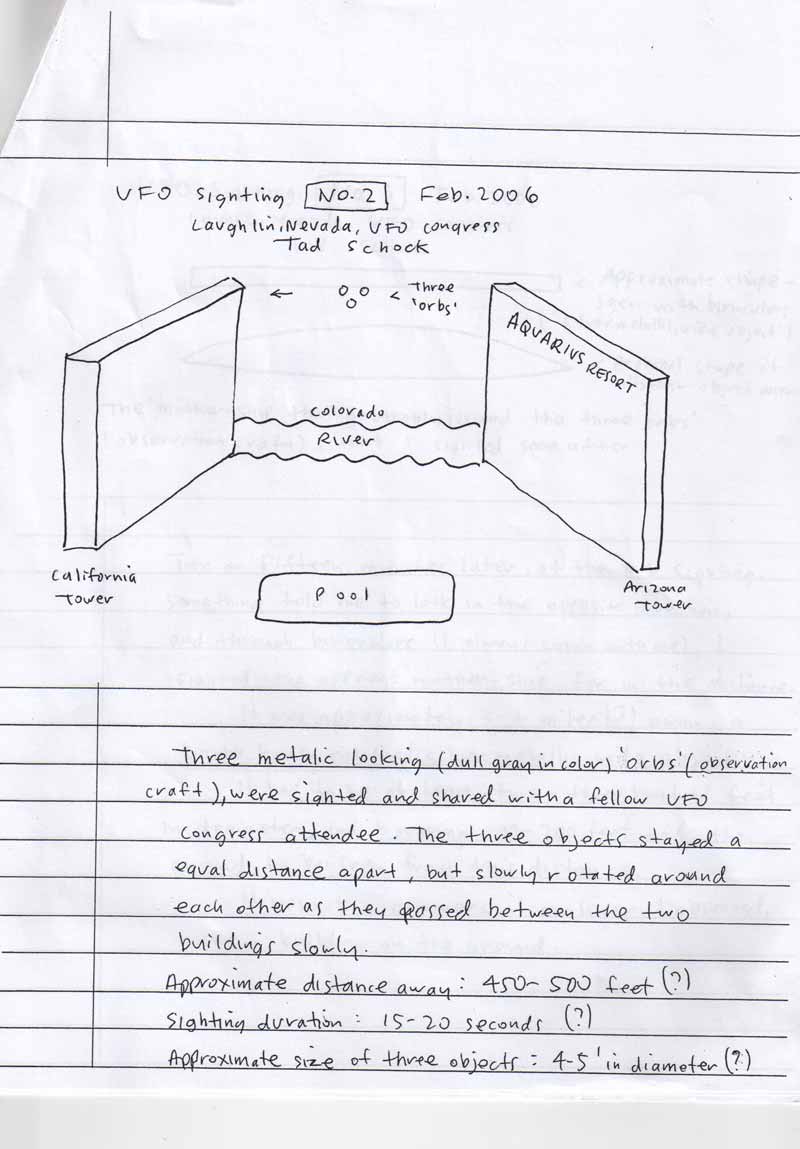 UFO Signting NO.2 Feb. 2006
Laughlin, Nevada, UFO congress
Tad Schock
← < Three
'orbs'
AQUARIUS RESORT
Colorado
River
California
Tower
P 001
Arizona
Tower
Three metalic looking (dull gray in color) 'orbs' (observation
craft), were sighted and shared with a fellow UFO
congress attendee. The three objects stayed a
equal distance apart, but slowly rotated around
each other as they passed between the two
buildings slowly.
Approximate distance away: 450-500 feet (?)
Sighting duration: 15-20 seconds (?)
Approximate size of three objects: 4-5' in diameter (?)